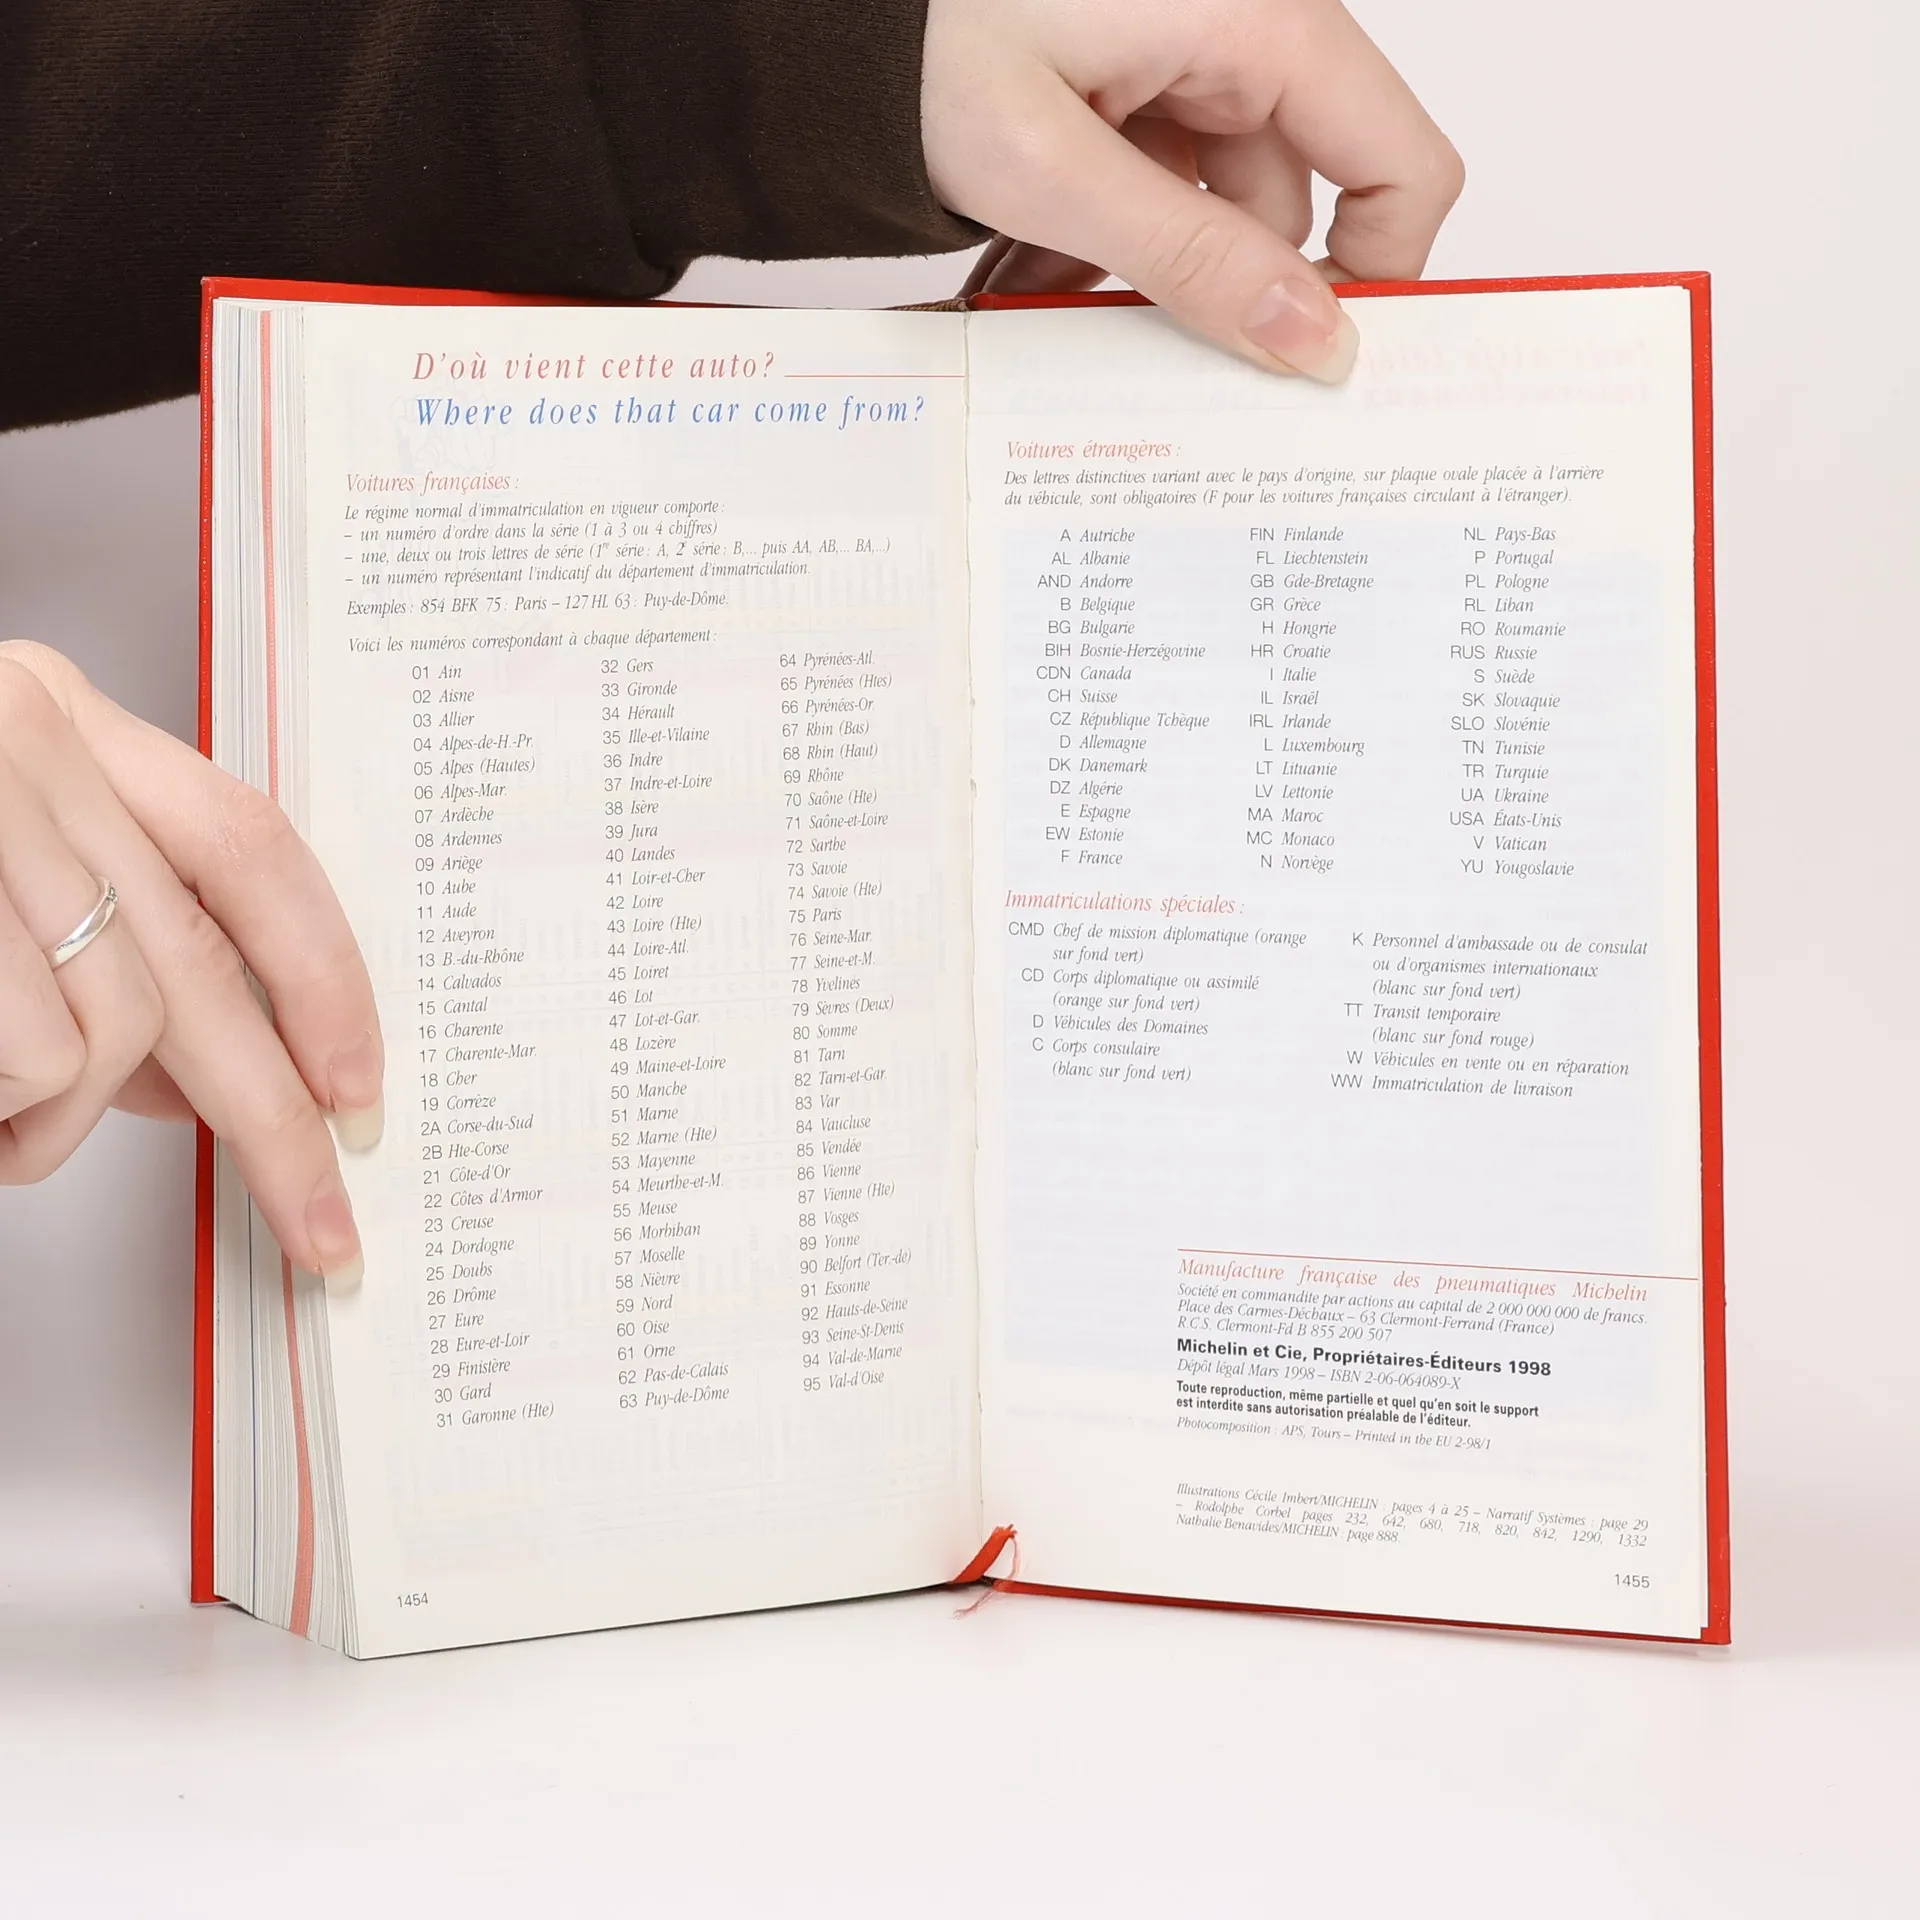 D'où vient cette auto?
Where does that car come from?
Voitures françaises :
Le régime normal d'immatriculation en vigueur comporte :
– un numéro d'ordre dans la série (1 à 3 ou 4 chiffres)
– une, deux ou trois lettres de série (1re série : A, 2e série : B,... puis AA, AB,... BA,...)
– un numéro représentant l'indicatif du département d'immatriculation.
Exemples : 854 BFK 75 : Paris – 127 HL 63 : Puy-de-Dôme.
Voici les numéros correspondant à chaque département :
01 Ain
02 Aisne
03 Allier
04 Alpes-de-H.-Pr.
05 Alpes (Hautes)
06 Alpes-Mar.
07 Ardèche
08 Ardennes
09 Ariège
10 Aube
11 Aude
12 Aveyron
13 B.-du-Rhône
14 Calvados
15 Cantal
16 Charente
17 Charente-Mar.
18 Cher
19 Corrèze
2A Corse-du-Sud
2B Hte-Corse
21 Côte-d'Or
22 Côtes d'Armor
23 Creuse
24 Dordogne
25 Doubs
26 Drôme
27 Eure
28 Eure-et-Loir
29 Finistère
30 Gard
31 Garonne (Hte)
32 Gers
33 Gironde
34 Hérault
35 Ille-et-Vilaine
36 Indre
37 Indre-et-Loire
38 Isère
39 Jura
40 Landes
41 Loir-et-Cher
42 Loire
43 Loire (Hte)
44 Loire-Atl.
45 Loiret
46 Lot
47 Lot-et-Gar.
48 Lozère
49 Maine-et-Loire
50 Manche
51 Marne
52 Marne (Hte)
53 Mayenne
54 Meurthe-et-M.
55 Meuse
56 Morbihan
57 Moselle
58 Nièvre
59 Nord
60 Oise
61 Orne
62 Pas-de-Calais
63 Puy-de-Dôme
64 Pyrénées-Atl.
65 Pyrénées (Htes)
66 Pyrénées-Or.
67 Rhin (Bas)
68 Rhin (Haut)
69 Rhône
70 Saône (Hte)
71 Saône-et-Loire
72 Sarthe
73 Savoie
74 Savoie (Hte)
75 Paris
76 Seine-Mar.
77 Seine-et-M.
78 Yvelines
79 Sèvres (Deux)
80 Somme
81 Tarn
82 Tarn-et-Gar.
83 Var
84 Vaucluse
85 Vendée
86 Vienne
87 Vienne (Hte)
88 Vosges
89 Yonne
90 Belfort (Ter.-de)
91 Essonne
92 Hauts-de-Seine
93 Seine-St-Denis
94 Val-de-Marne
95 Val-d'Oise
1454
Voitures étrangères :
Des lettres distinctives variant avec le pays d'origine, sur plaque ovale placée à l'arrière
du véhicule, sont obligatoires (F pour les voitures françaises circulant à l'étranger).
A Autriche
AL Albanie
AND Andorre
B Belgique
BG Bulgarie
BIH Bosnie-Herzégovine
CDN Canada
CH Suisse
CZ République Tchèque
D Allemagne
DK Danemark
DZ Algérie
E Espagne
EW Estonie
F France
FIN Finlande
FL Liechtenstein
GB Gde-Bretagne
GR Grèce
H Hongrie
HR Croatie
I Italie
IL Israël
IRL Irlande
L Luxembourg
LT Lituanie
LV Lettonie
MA Maroc
MC Monaco
N Norvège
NL Pays-Bas
P Portugal
PL Pologne
RL Liban
RO Roumanie
RUS Russie
S Suède
SK Slovaquie
SLO Slovénie
TN Tunisie
TR Turquie
UA Ukraine
USA États-Unis
V Vatican
YU Yougoslavie
Immatriculations spéciales :
CMD Chef de mission diplomatique (orange
sur fond vert)
CD Corps diplomatique ou assimilé
(orange sur fond vert)
D Véhicules des Domaines
C Corps consulaire
(blanc sur fond vert)
K Personnel d'ambassade ou de consulat
ou d'organismes internationaux
(blanc sur fond vert)
TT Transit temporaire
(blanc sur fond rouge)
W Véhicules en vente ou en réparation
WW Immatriculation de livraison
Manufacture française des pneumatiques Michelin
Société en commandite par actions au capital de 2 000 000 000 de francs.
Place des Carmes-Déchaux – 63 Clermont-Ferrand (France)
R.C.S. Clermont-Fd B 855 200 507
Michelin et Cie, Propriétaires-Éditeurs 1998
Dépôt légal Mars 1998 – ISBN 2-06-064089-X
Toute reproduction, même partielle et quel qu'en soit le support
est interdite sans autorisation préalable de l'éditeur.
Photocomposition : APS, Tours – Printed in the EU 2-98/1
Illustrations Cécile Imbert/MICHELIN : pages 4 à 25 – Narratif Systèmes : page 29
– Rodolphe Corbel pages 232, 642, 680, 718, 820, 842, 1290, 1332
Nathalie Benavides/MICHELIN : page 888.
1455